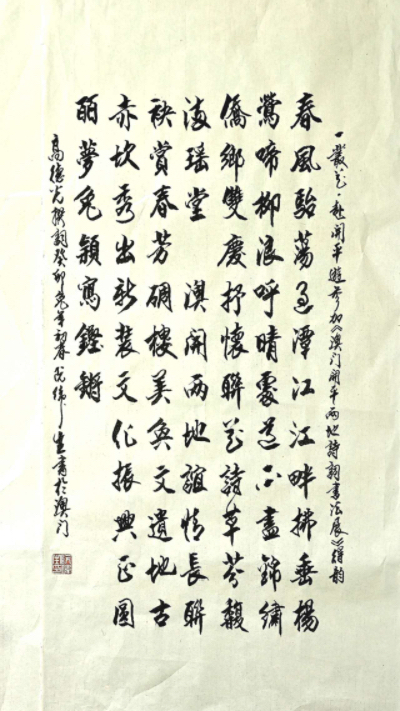 一叢花·赴開平遊參加《澳门開平兩地詩詞書法展》得韵
春風駘蕩過潭江江畔拂垂楊
鶯啼柳浪呼晴靄道不盡錦繡
僑鄉雙慶抒懷聯花詩草芬馥
滿瑤堂 澳開兩地誼情長聯
袂賞春芳碉樓美奐文遺地古
赤坎秀出新裝文化振興正圓
丽夢兔穎寫鏗鏘
高德光撰詞癸卯兔年初春緯生書於澳门